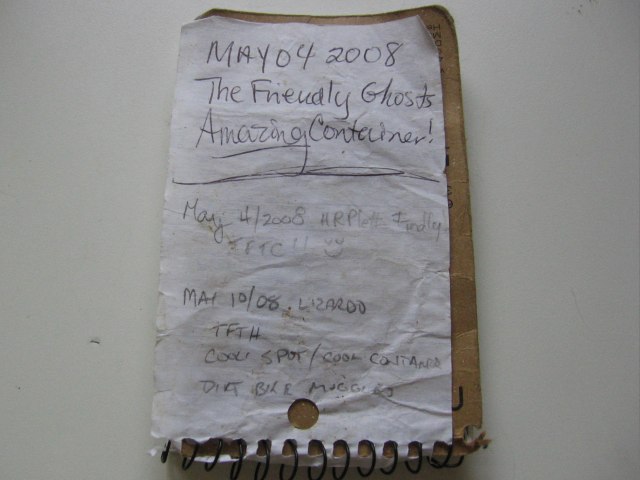 MAY 04 2008
The Friendly Ghosts
Amazing Container!
May 4/2008 Findly!
TFTC !!
MAY 10/08. LIZARDO
TFTH
COOL SPOT/COOL CONTAINER
DIRT BIKE MUGGLES